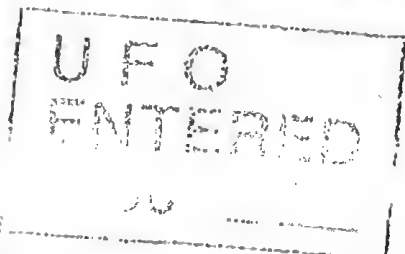 UFO
ENTERED